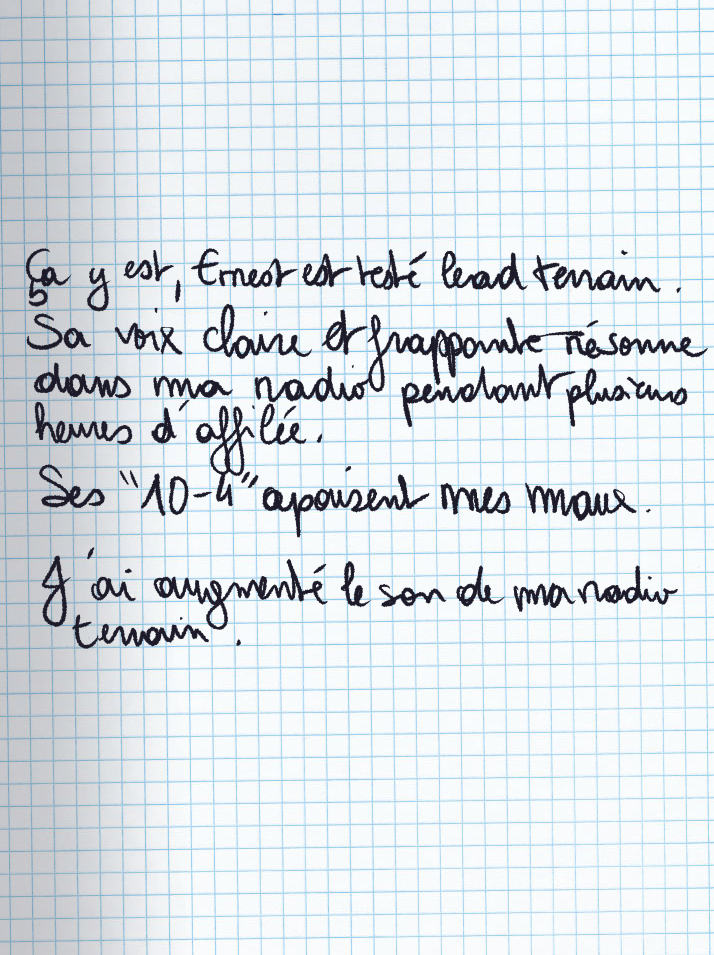 Ça y est, Ernest est testé lead terrain.
Sa voix claire et frappante résonne
dans ma radio pendant plusieurs
heures d'affilée.
Ses "10-4" apaisent mes maux.
J'ai augmenté le son de ma radio
terrain.